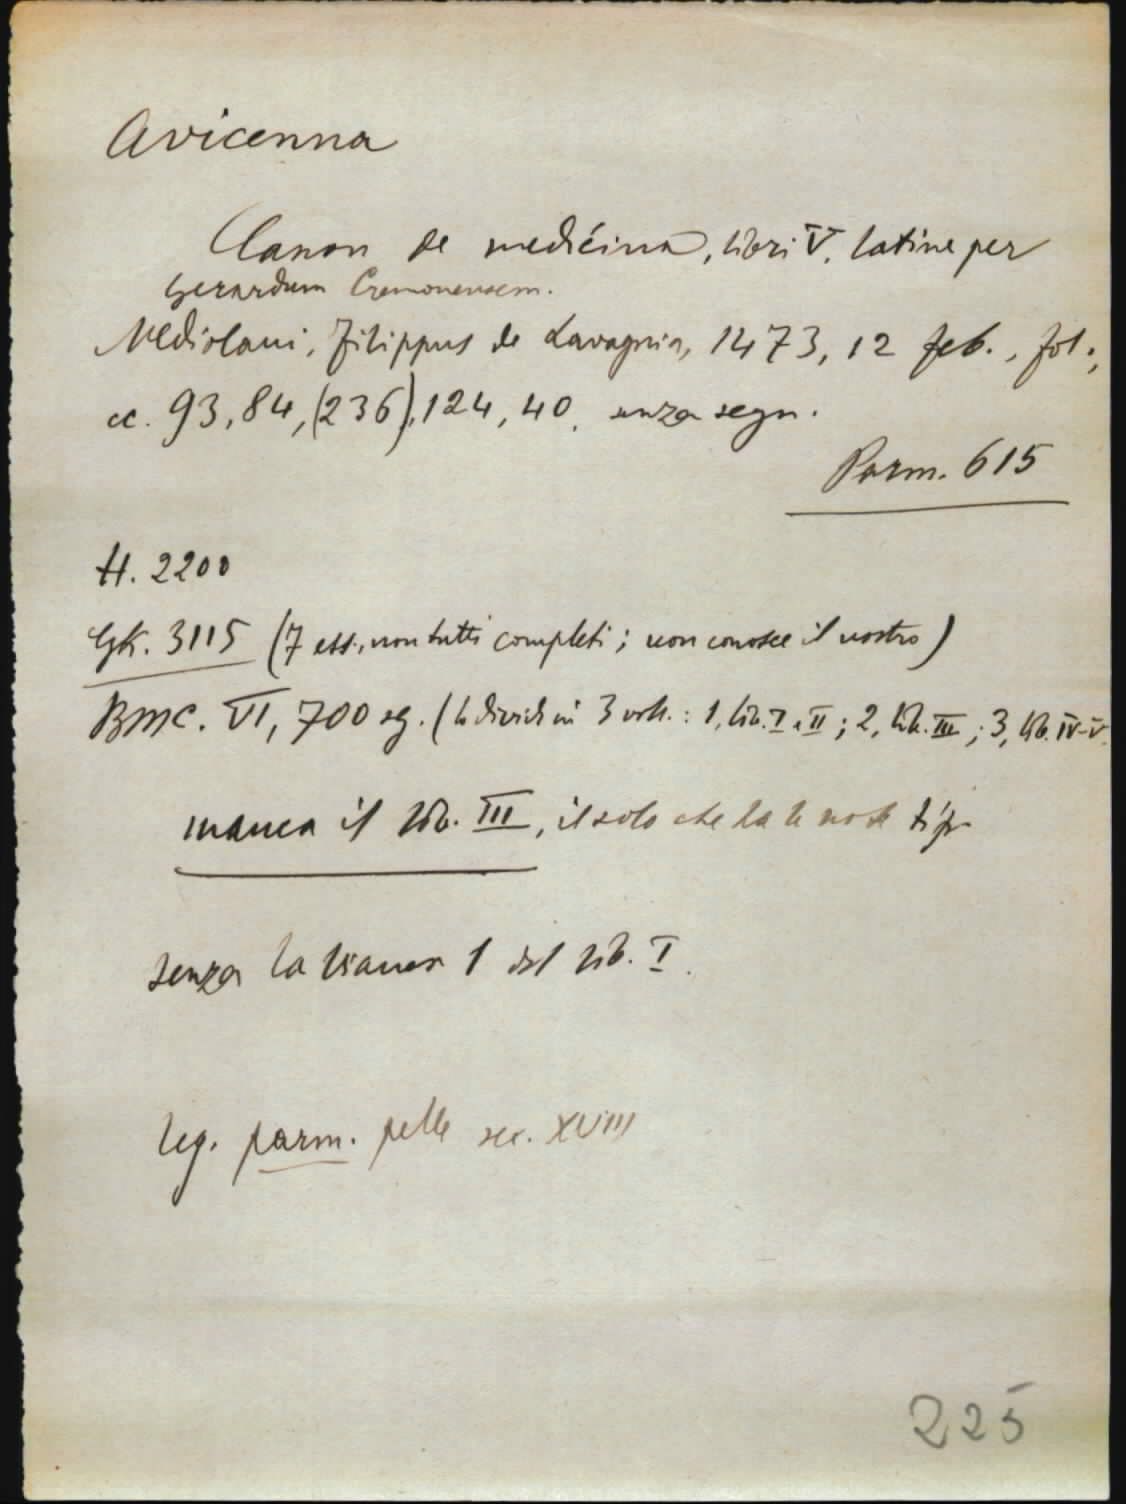 Avicenna
Canon de medicina, libri V. latine per
Gerardum Cremonensem.
Mediolani, Filippus de Lavagnia, 1473, 12 feb., fol.,
cc. 93, 84, (236), 124, 40. senza segn.
Parm. 615
H. 2200
Gk. 3115 (7 ess., non tutti completi; non conosce il nostro)
BMC. VI, 700 sg. (lo divide in 3 voll.: 1, lib. I e II; 2, lib. III; 3, lib. IV-V.
manca il lib. III, il solo che ha le note tip
senza la bianca 1 del lib. I.
leg. parm. pelle sec. XVIII
225